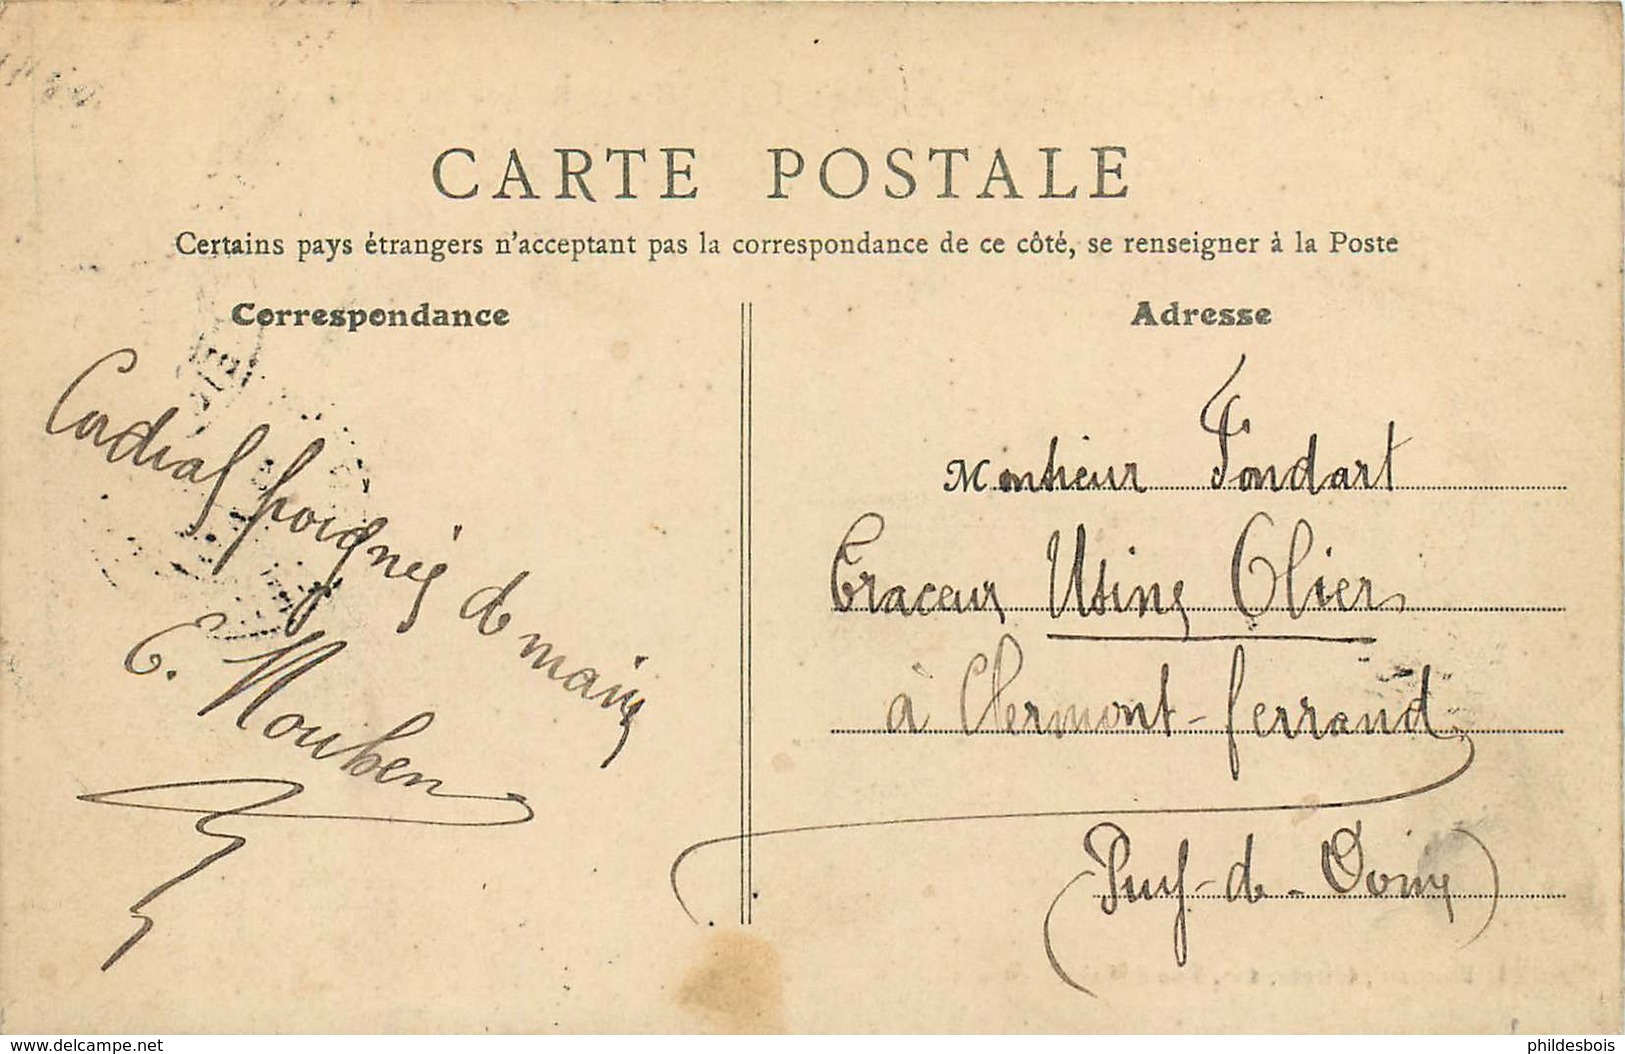 CARTE POSTALE
Certains pays étrangers n'acceptant pas la correspondance de ce côté, se renseigner à la Poste
Correspondance
Cordial poignés de main
E.
Adresse
Monsieur Fondart
Traceur Usine Olier
à Clermont-ferrand
(Puy-de-Dôme)
www.delcampe.net
phildesbois